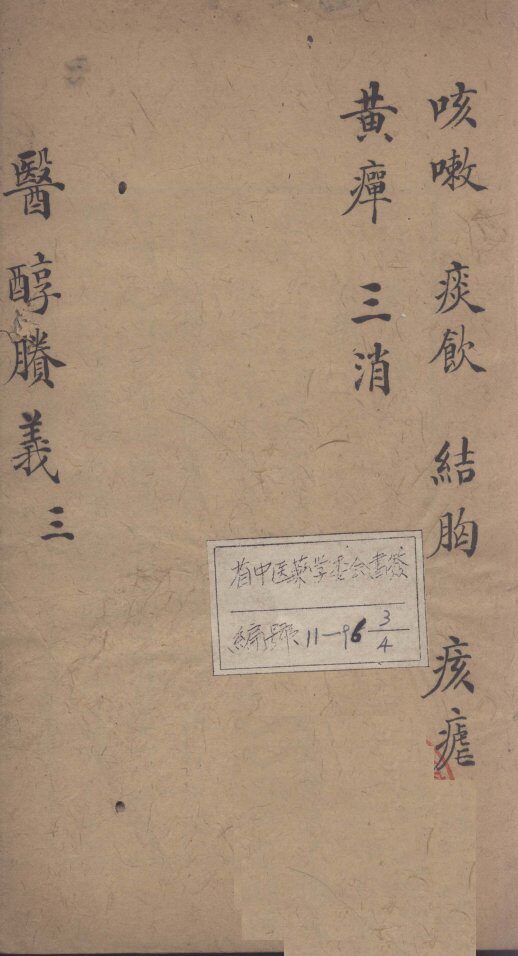 咳嗽 痰飲 結胸 痎瘧
黃癉 三消
醫醇賸義 三
省中医藥学委会書簽
編號 11-96 3/4